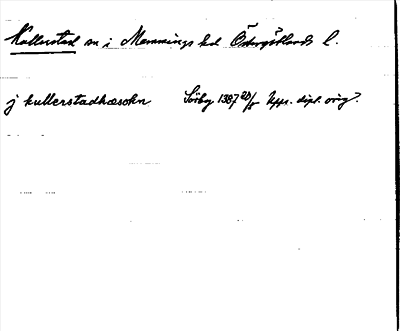 Kullerstad sn i Memmings hd Östergötlands l.
j kullerstadhæsokn Söröby 1387 20/5 Upps. dipl. orig.